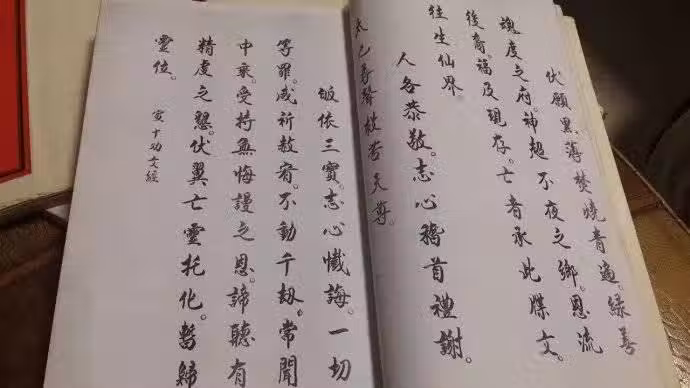 伏願黑薄焚燒青過。緑善
魂度之府。神超不夜之鄉。恩流
後裔。福及現存。亡者承此牒文。
往生仙界。
人各恭敬。志心稽首禮謝。
太乙尋聲救苦天尊。
皈依三寶。志心懺誨。一切
等罪。咸祈赦宥。不動千劫。常聞
中乘。受持無悔謾之恩。諦聽有
精虔之懇。伏冀亡靈托化。暫歸
靈位。 宣十功文經